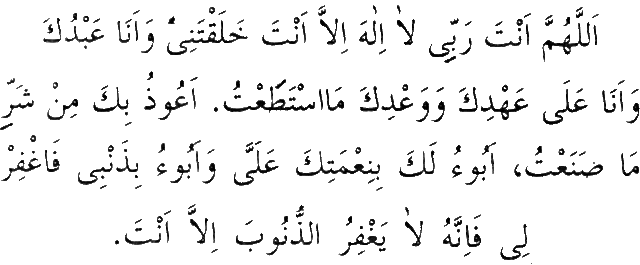 اَللَّهُمَّ اَنْتَ رَبِّى لاٰ اِلٰهَ اِلاَّ اَنْتَ خَلَقْتَنِىۘ وَاَنَا عَبْدُكَ
وَاَنَا عَلَى عَهْدِكَ وَوَعْدِكَ مَااسْتَطَعْتُ. اَعُوذُ بِكَ مِنْ شَرِّ
مَا صَنَعْتُ، اَبُوءُ لَكَ بِنِعْمَتِكَ عَلَىَّ وَاَبُوءُ بِذَنْبِى فَاغْفِرْ
لِى فَاِنَّهُ لاٰ يَغْفِرُ الذُّنُوبَ اِلاَّ اَنْتَ.